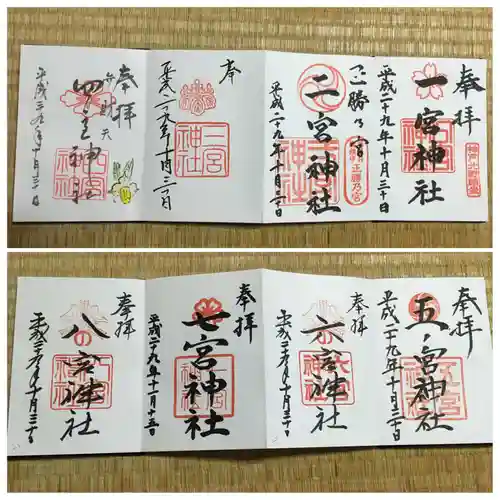 奉拝
一宮神社
平成二十九年十月三十日
正勝乃宮
二宮神社
平成二十九年十月三十日
奉
三宮神社
平成二十九年十月三十日
奉拝
弁財天
四宮神社
平成二九年十月三十一日
奉拝
五ノ宮神社
平成二十九年十月三十日
奉拝
六宮神社
平成二九年十月三十日
奉拝
七宮神社
平成二十九年十一月十五日
奉拝
八宮神社
平成二九年十月三十日